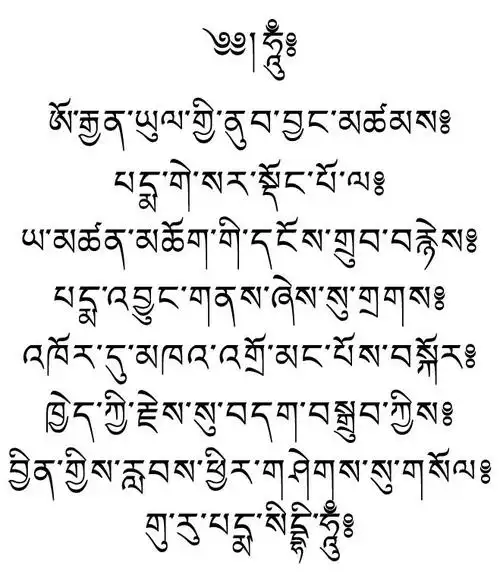 ༄༅། ཧཱུྃ༔
ཨོ་རྒྱན་ཡུལ་གྱི་ནུབ་བྱང་མཚམས༔
པདྨ་གེ་སར་སྡོང་པོ་ལ༔
ཡ་མཚན་མཆོག་གི་དངོས་གྲུབ་བརྙེས༔
པདྨ་འབྱུང་གནས་ཞེས་སུ་གྲགས༔
འཁོར་དུ་མཁའ་འགྲོ་མང་པོས་བསྐོར༔
ཁྱེད་ཀྱི་རྗེས་སུ་བདག་བསྒྲུབ་ཀྱིས༔
བྱིན་གྱིས་རླབས་ཕྱིར་གཤེགས་སུ་གསོལ༔
གུ་རུ་པདྨ་སིདྡྷི་ཧཱུྃ༔